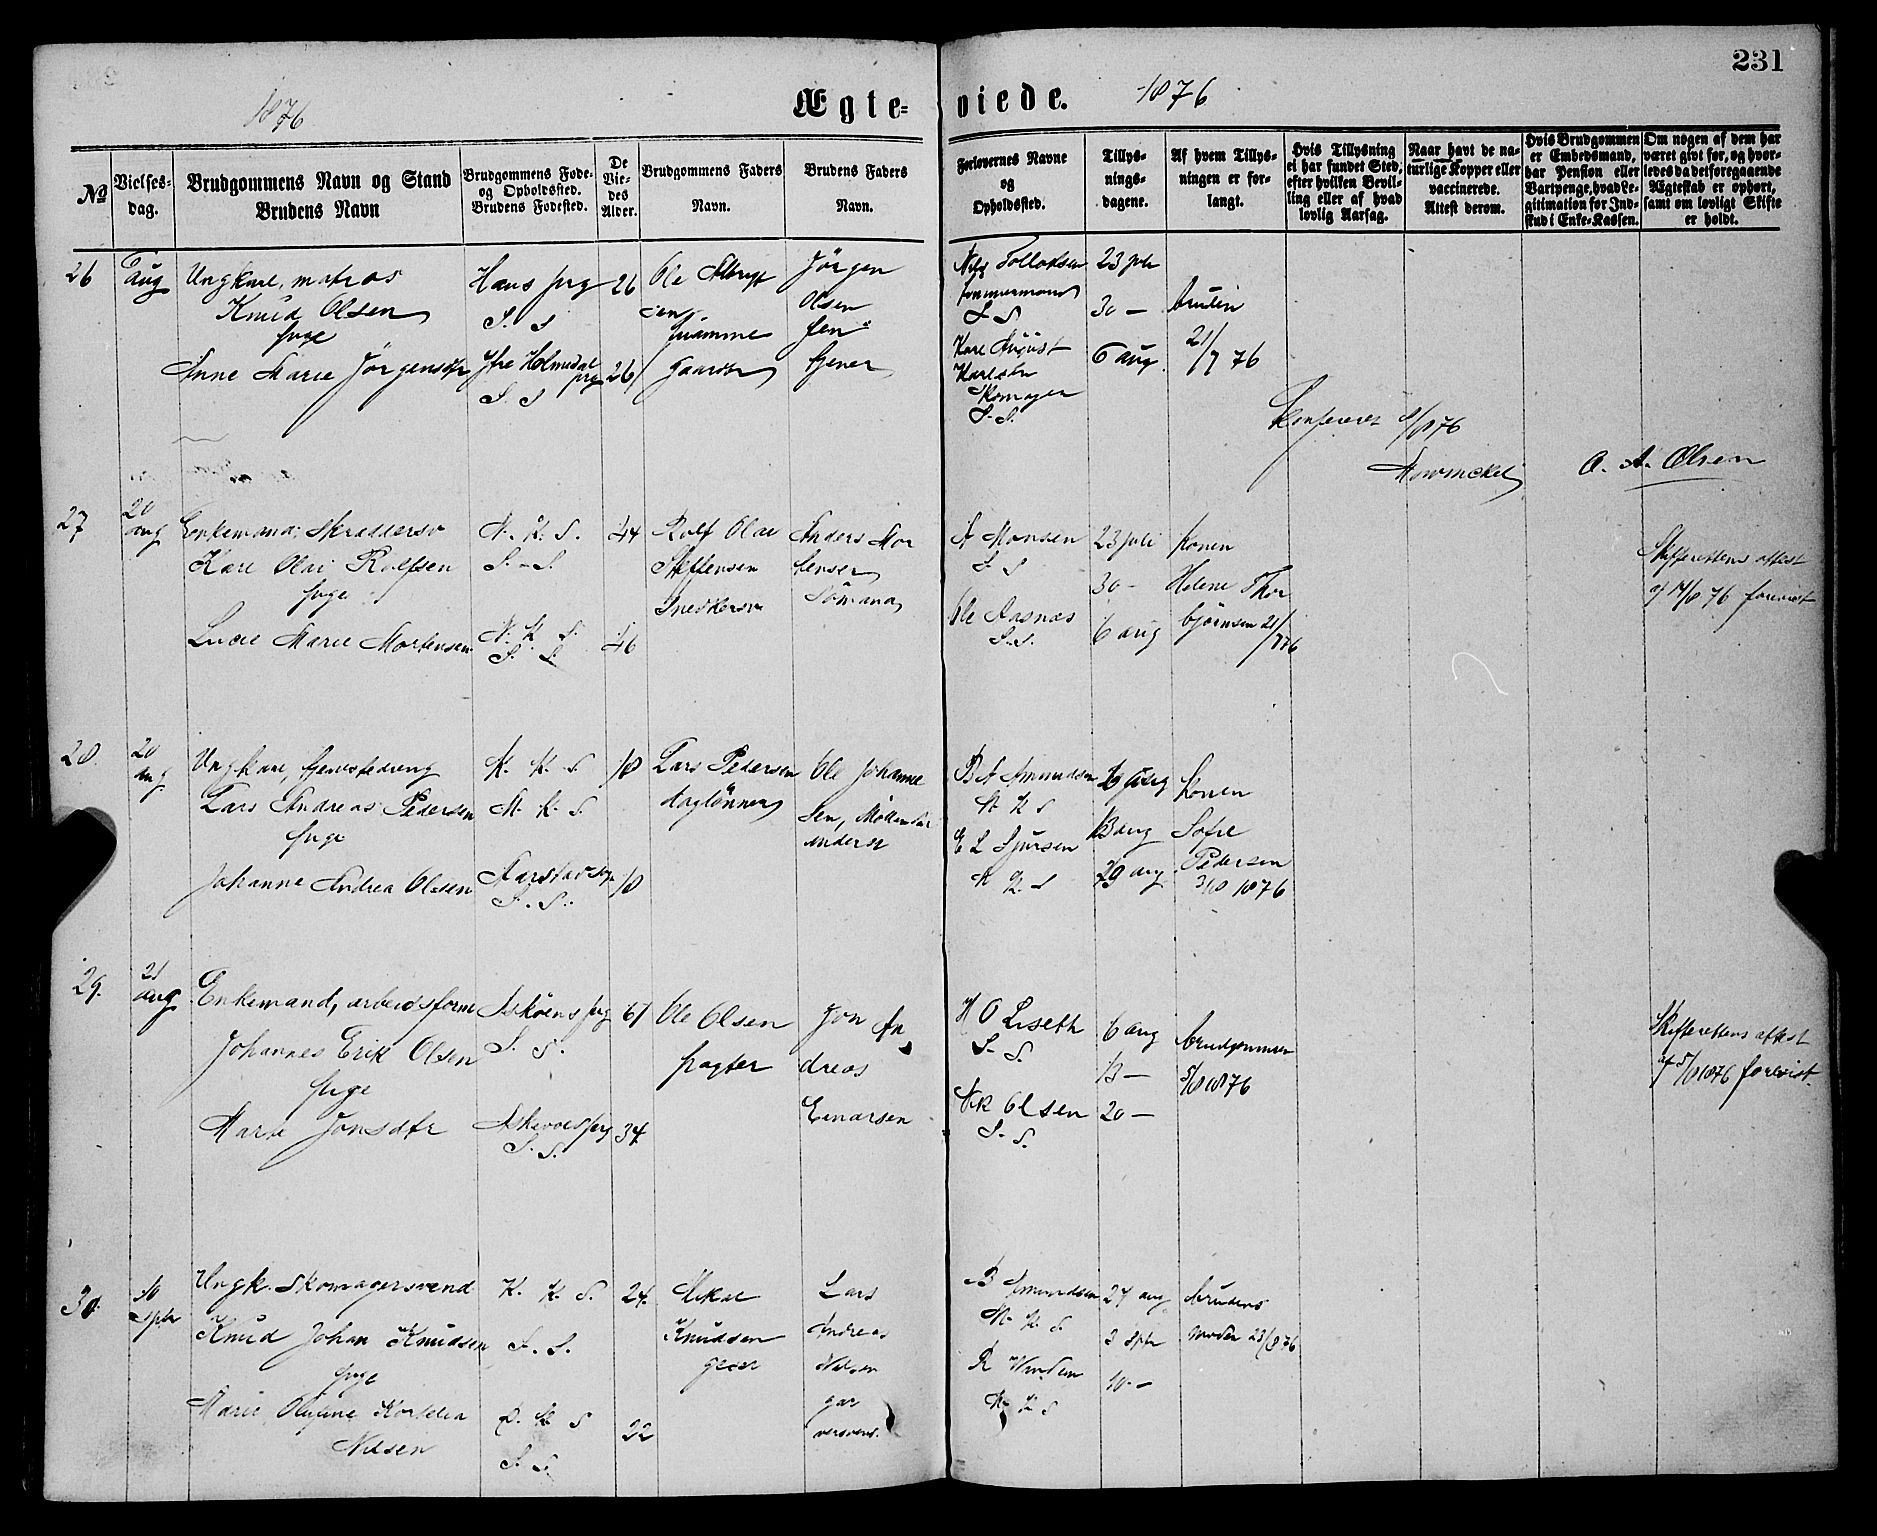 231
1876
Ægte=
viede.
1876
No
Vielses-
dag.
Brudgommens Navn og Stand
Brudens Navn
Brudgommens Føde-
og Opholdssted.
Brudens Fødested.
De
Vie-
des
Alder.
Brudgommens Faders
Navn.
Brudens Faders
Navn.
Forlovernes Navne
og
Opholdssted.
Tillys-
nings-
dagene.
Af hvem Tillys-
ningen er for-
langt.
Hvis Tillysning
ei har fundet Sted,
efter hvilken Bevil-
ling eller af hvad
lovlig Aarsag.
Naar havt de na-
turlige Kopper eller
vaccinerede.
Attest derom.
Hvis Brudgommen
er Embedsmand,
har Pension eller
Vartpenge, hvad Le-
gitimation for Ind-
skud i Enke-Kassen.
Om nogen af dem har
været givt før, og hvor-
ledes da det foregaaende
Ægteskab er ophørt,
samt om lovligt Skifte
er holdt.
26
6
Aug
Ungkarl, matros
Knud Olsen
pige
Anne Marie Jørgensdtr
Haus prg
S. S
Ytre Holmedal
prg
S. S
26
26
Ole
Kvamme
Jørgen
Olsen
Nils
tømmermand
S S
Karl August
Karlsen
Skomager
S. S.
23 juli
30 –
6 aug.
bruden
21/7 76
Konfereret 9/8 76
Mowinckel
O. A. Olsen
27
20
aug
Enkemand, Skreddersv
Karl Olai Rolfsen
pige
Lucie Marie Mortensen
N. K. S.
S. S.
N. K. S.
S. S.
44
46
Rolf Olai
Steffensen
Snedkersv
Anders Mor
tensen
Sömand
A Monsen
S. S
Ole Aasnæs
S. S.
23 juli
30 –
6 aug
Konen
Helene Thor
björnsen 21/
7 76
Skifterettens attest
af 17/8 76 forevist
28.
20
aug
Ungkarl, tjenestedreng
Lars Andreas Pedersen
pige
Johanne Andrea Olsen
K. K. S
N. K. S.
Aarstad s
S. S.
18
18
Lars Pedersen
daglønner
Ole Johanne
sen,
B A Amundsen
N K S
E L Sjursen
N K S
6 aug
13 aug
20 aug
Konen
Sofie
Pedersen
3/8 1876
29.
21
aug
Enkemand, arbeidsform
Johannes Erik Olsen
pige
Marte Jonsdtr
Askøens prg
S. S.
Askevold prg
S. S.
61
34
Ole Olsen
Jon An
dreas
Einarsen
H O Liseth
S. S.
Olsen
S. S.
6 aug
13 –
20 –
brudgommen
5/8 1876
Skifterettens attest
af 5/8 1876 forevist.
30.
10
sptr
Ungk. Skomagersvend
Knud Johan Knudsen
pige
Marie Olufine Kornelia
Nilsen
K. K. S.
S. S.
D. K S
S. S.
24.
22
Mikal
Knudsen
Lars
Andreas
Nilsen
gar
versvend.
B Amundsen
N. K S.
N K S
27 aug
3 sptr
10 –
brudens
moder 23/8 76